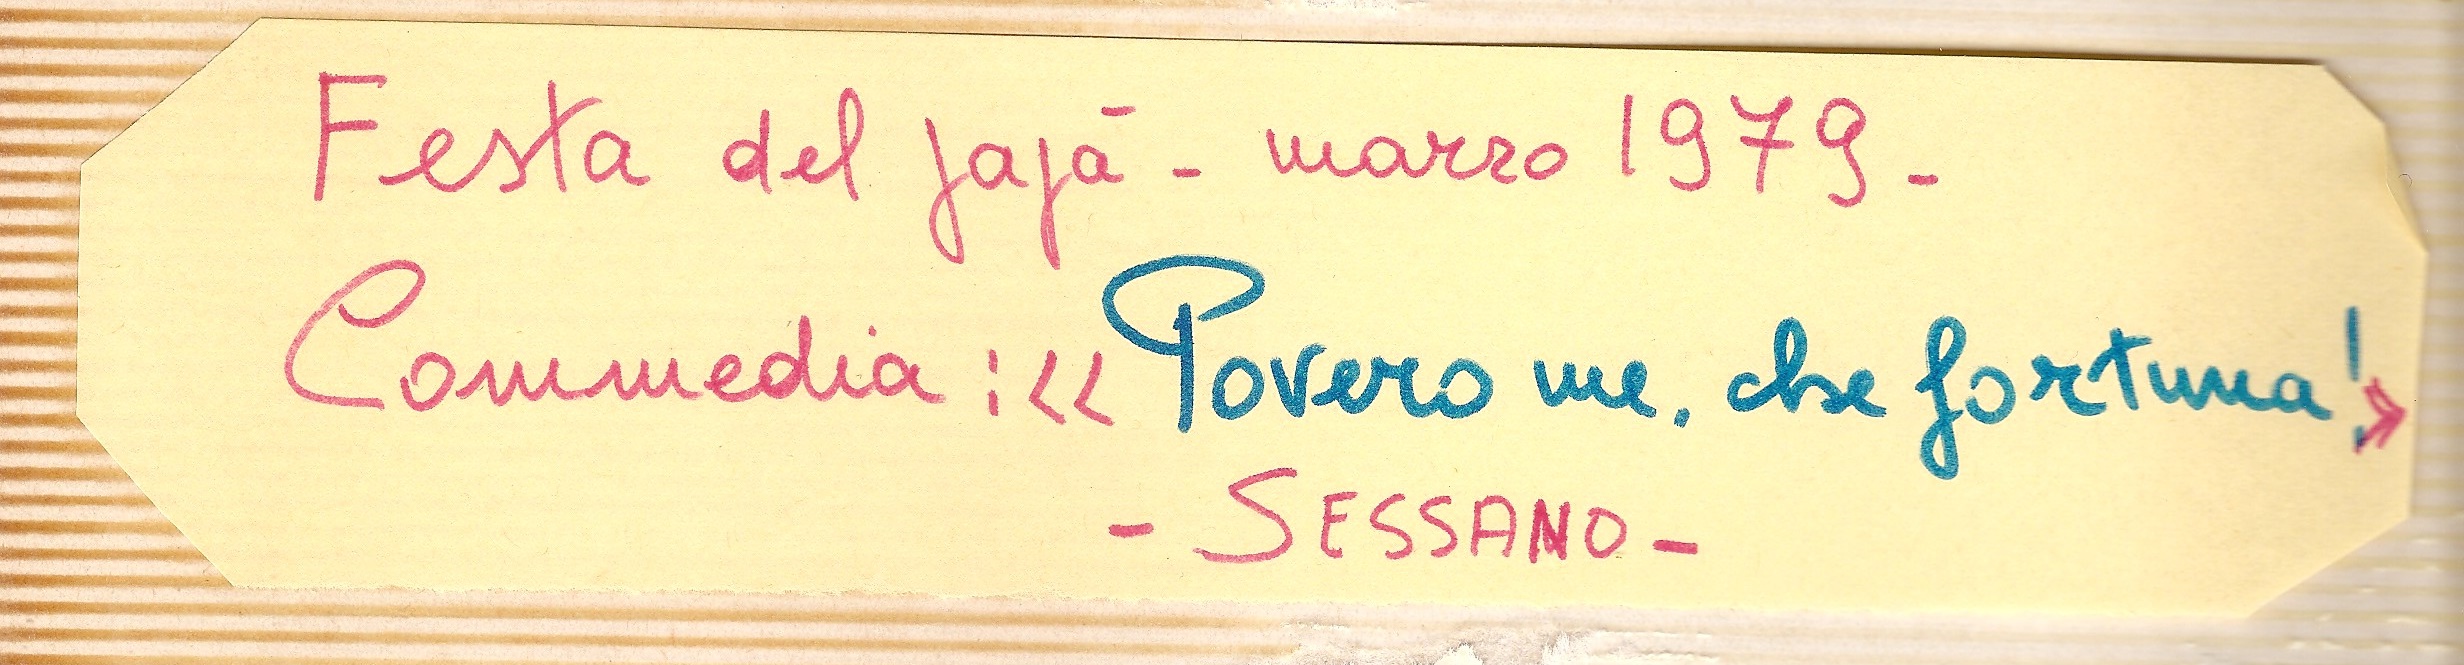 Festa del papà - marzo 1979 -
Commedia : << Povero me, che fortuna! >>
- SESSANO -